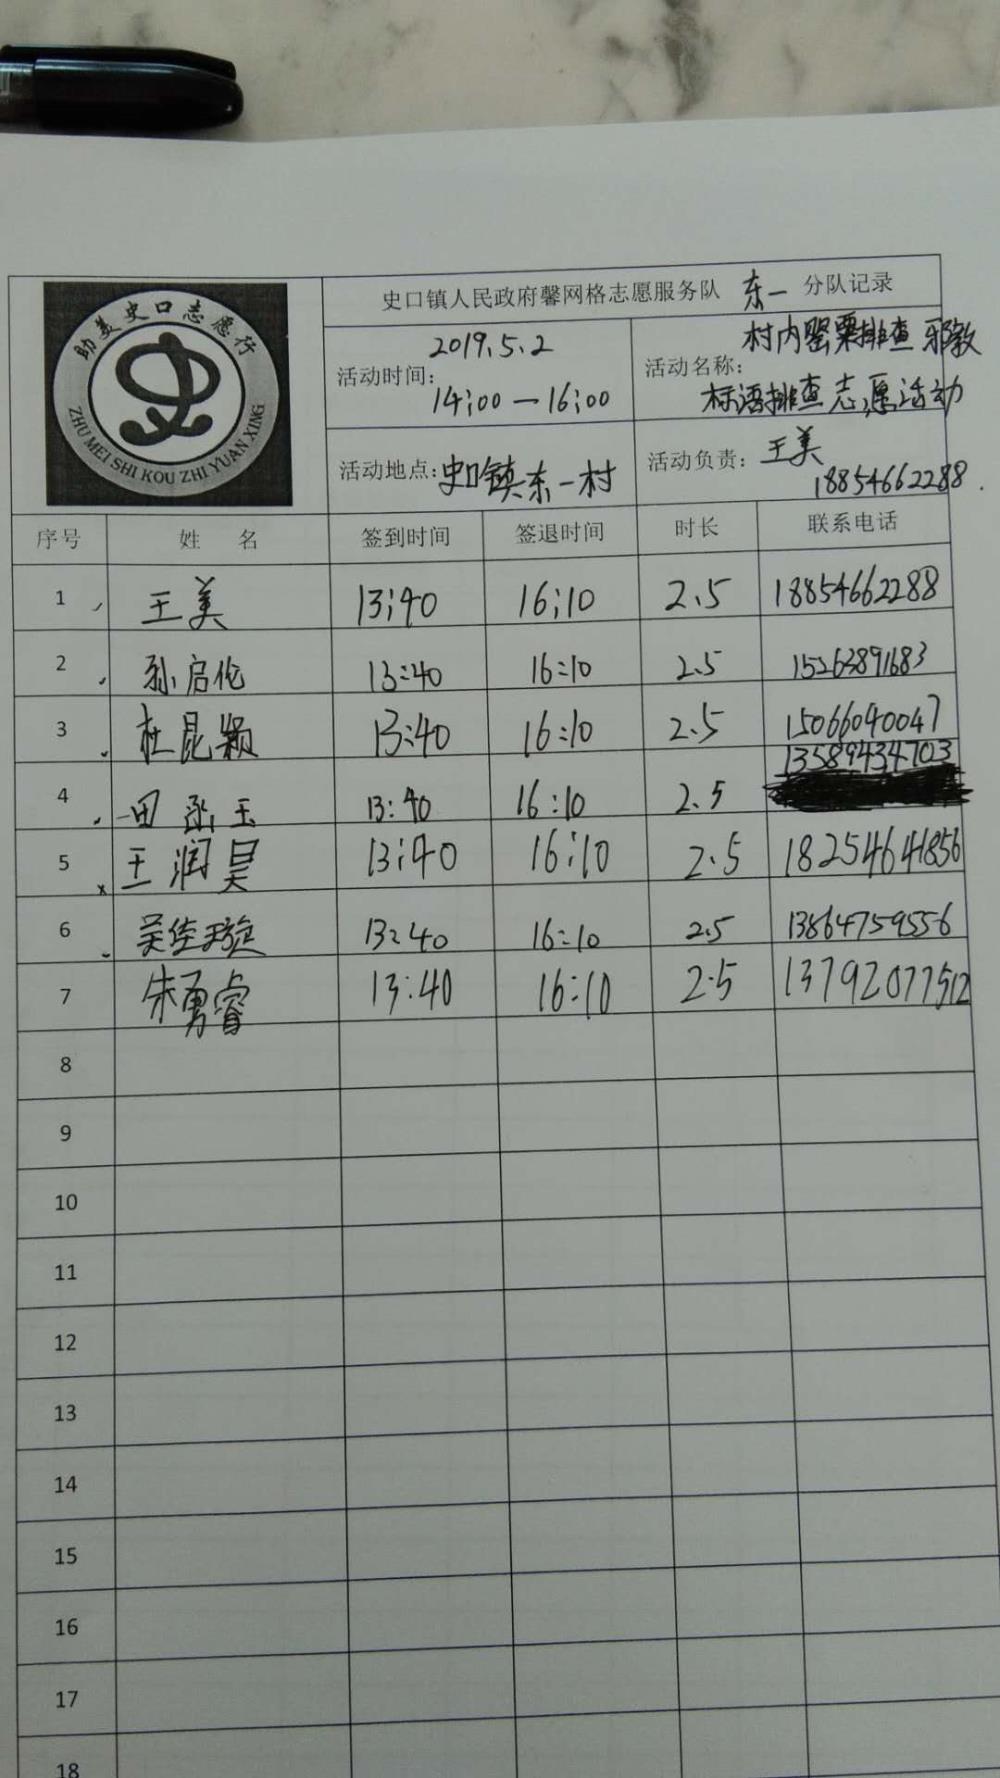 助美史口志愿行
ZHU MEI SHI KOU ZHI YUAN XING
史口镇人民政府馨网格志愿服务队 东一 分队记录
活动时间： 2019.5.2
14:00—16:00
活动名称： 村内罂粟排查 邪教
标语排查志愿活动
活动地点：史口镇东一村
活动负责：王美
18854662288.
序号 姓 名 签到时间 签退时间 时长 联系电话
1 王美 13:40 16:10 2.5 18854662288
2 孙启伦 13:40 16:10 2.5 15263891683
3 杜昆颖 13:40 16:10 2.5 15066040047
4 田 玉 13:40 16:10 2.5 13589434703
5 王润昊 13:40 16:10 2.5 18254641856
6 吴佳璇 13:40 16:10 2.5 13864759556
7 朱勇睿 13:40 16:10 2.5 13792077512
8
9
10
11
12
13
14
15
16
17
18